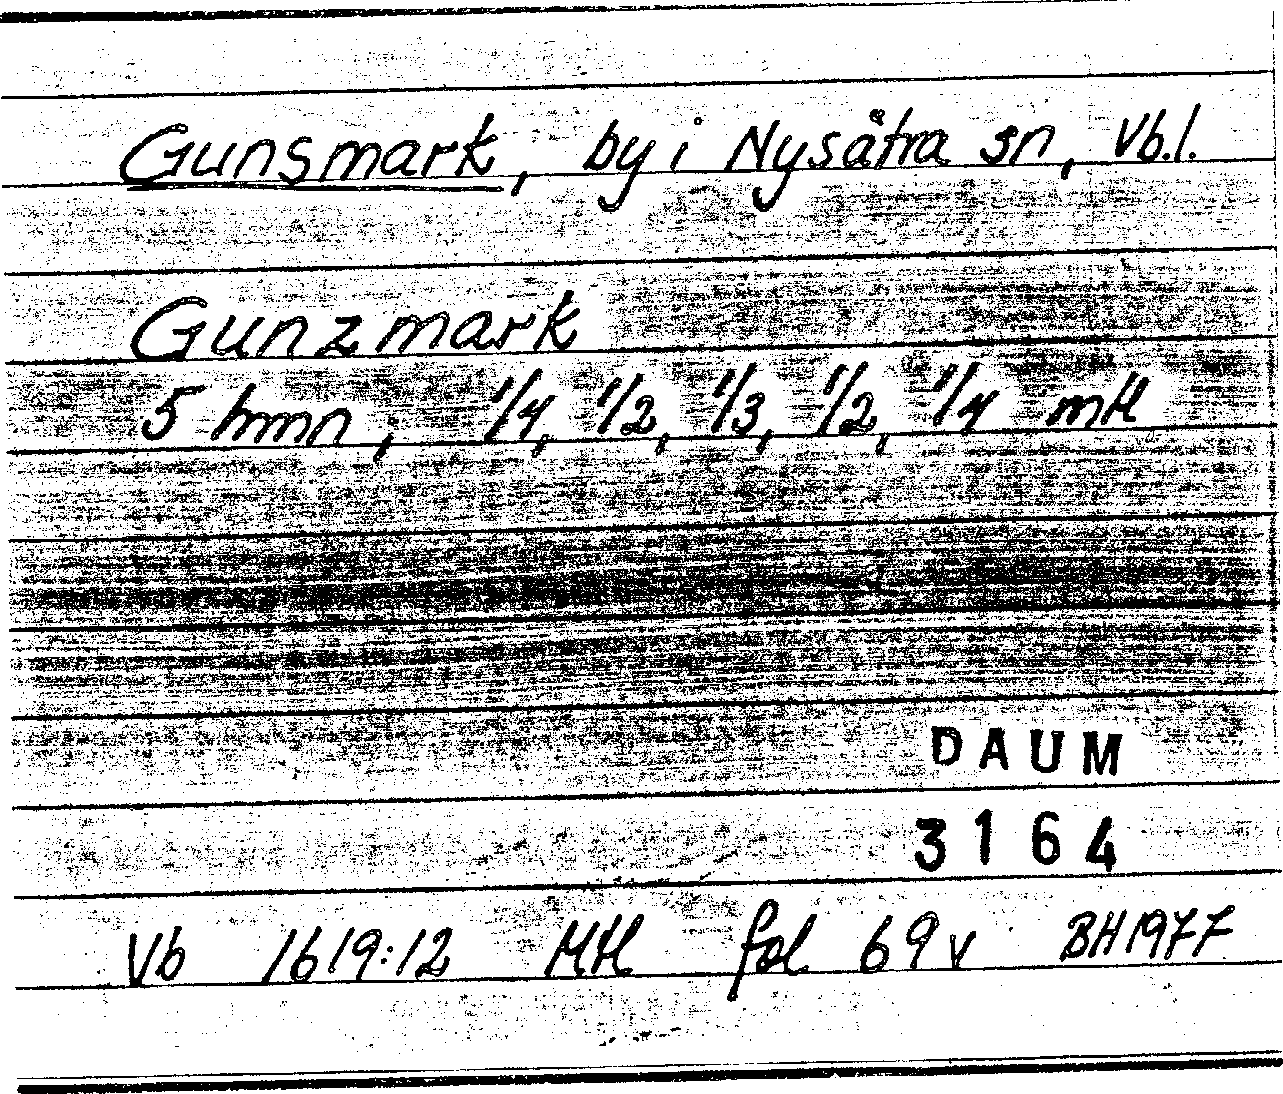 Gunsmark, by i Nysätra sn, Vb.l.
Gunzmark
5 hmn; 1/4, 1/2, 1/3, 1/2, 1/4 mtl
DAUM
3164
Vb 1619:12 Mtl fol 69v BH1977